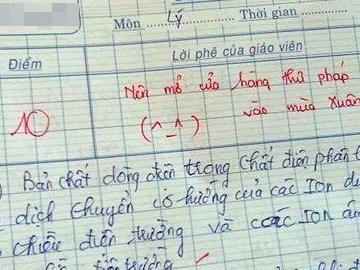 Môn Lý Thời gian
Điểm Lời phê của giáo viên
10 Nên mở cửa hàng thư pháp
(^_^) vào mùa Xuân
Bản chất dòng điện trong chất điện phân
dịch chuyển có hướng của các Ion
chiều điện trường và các Ion âm
điện trường